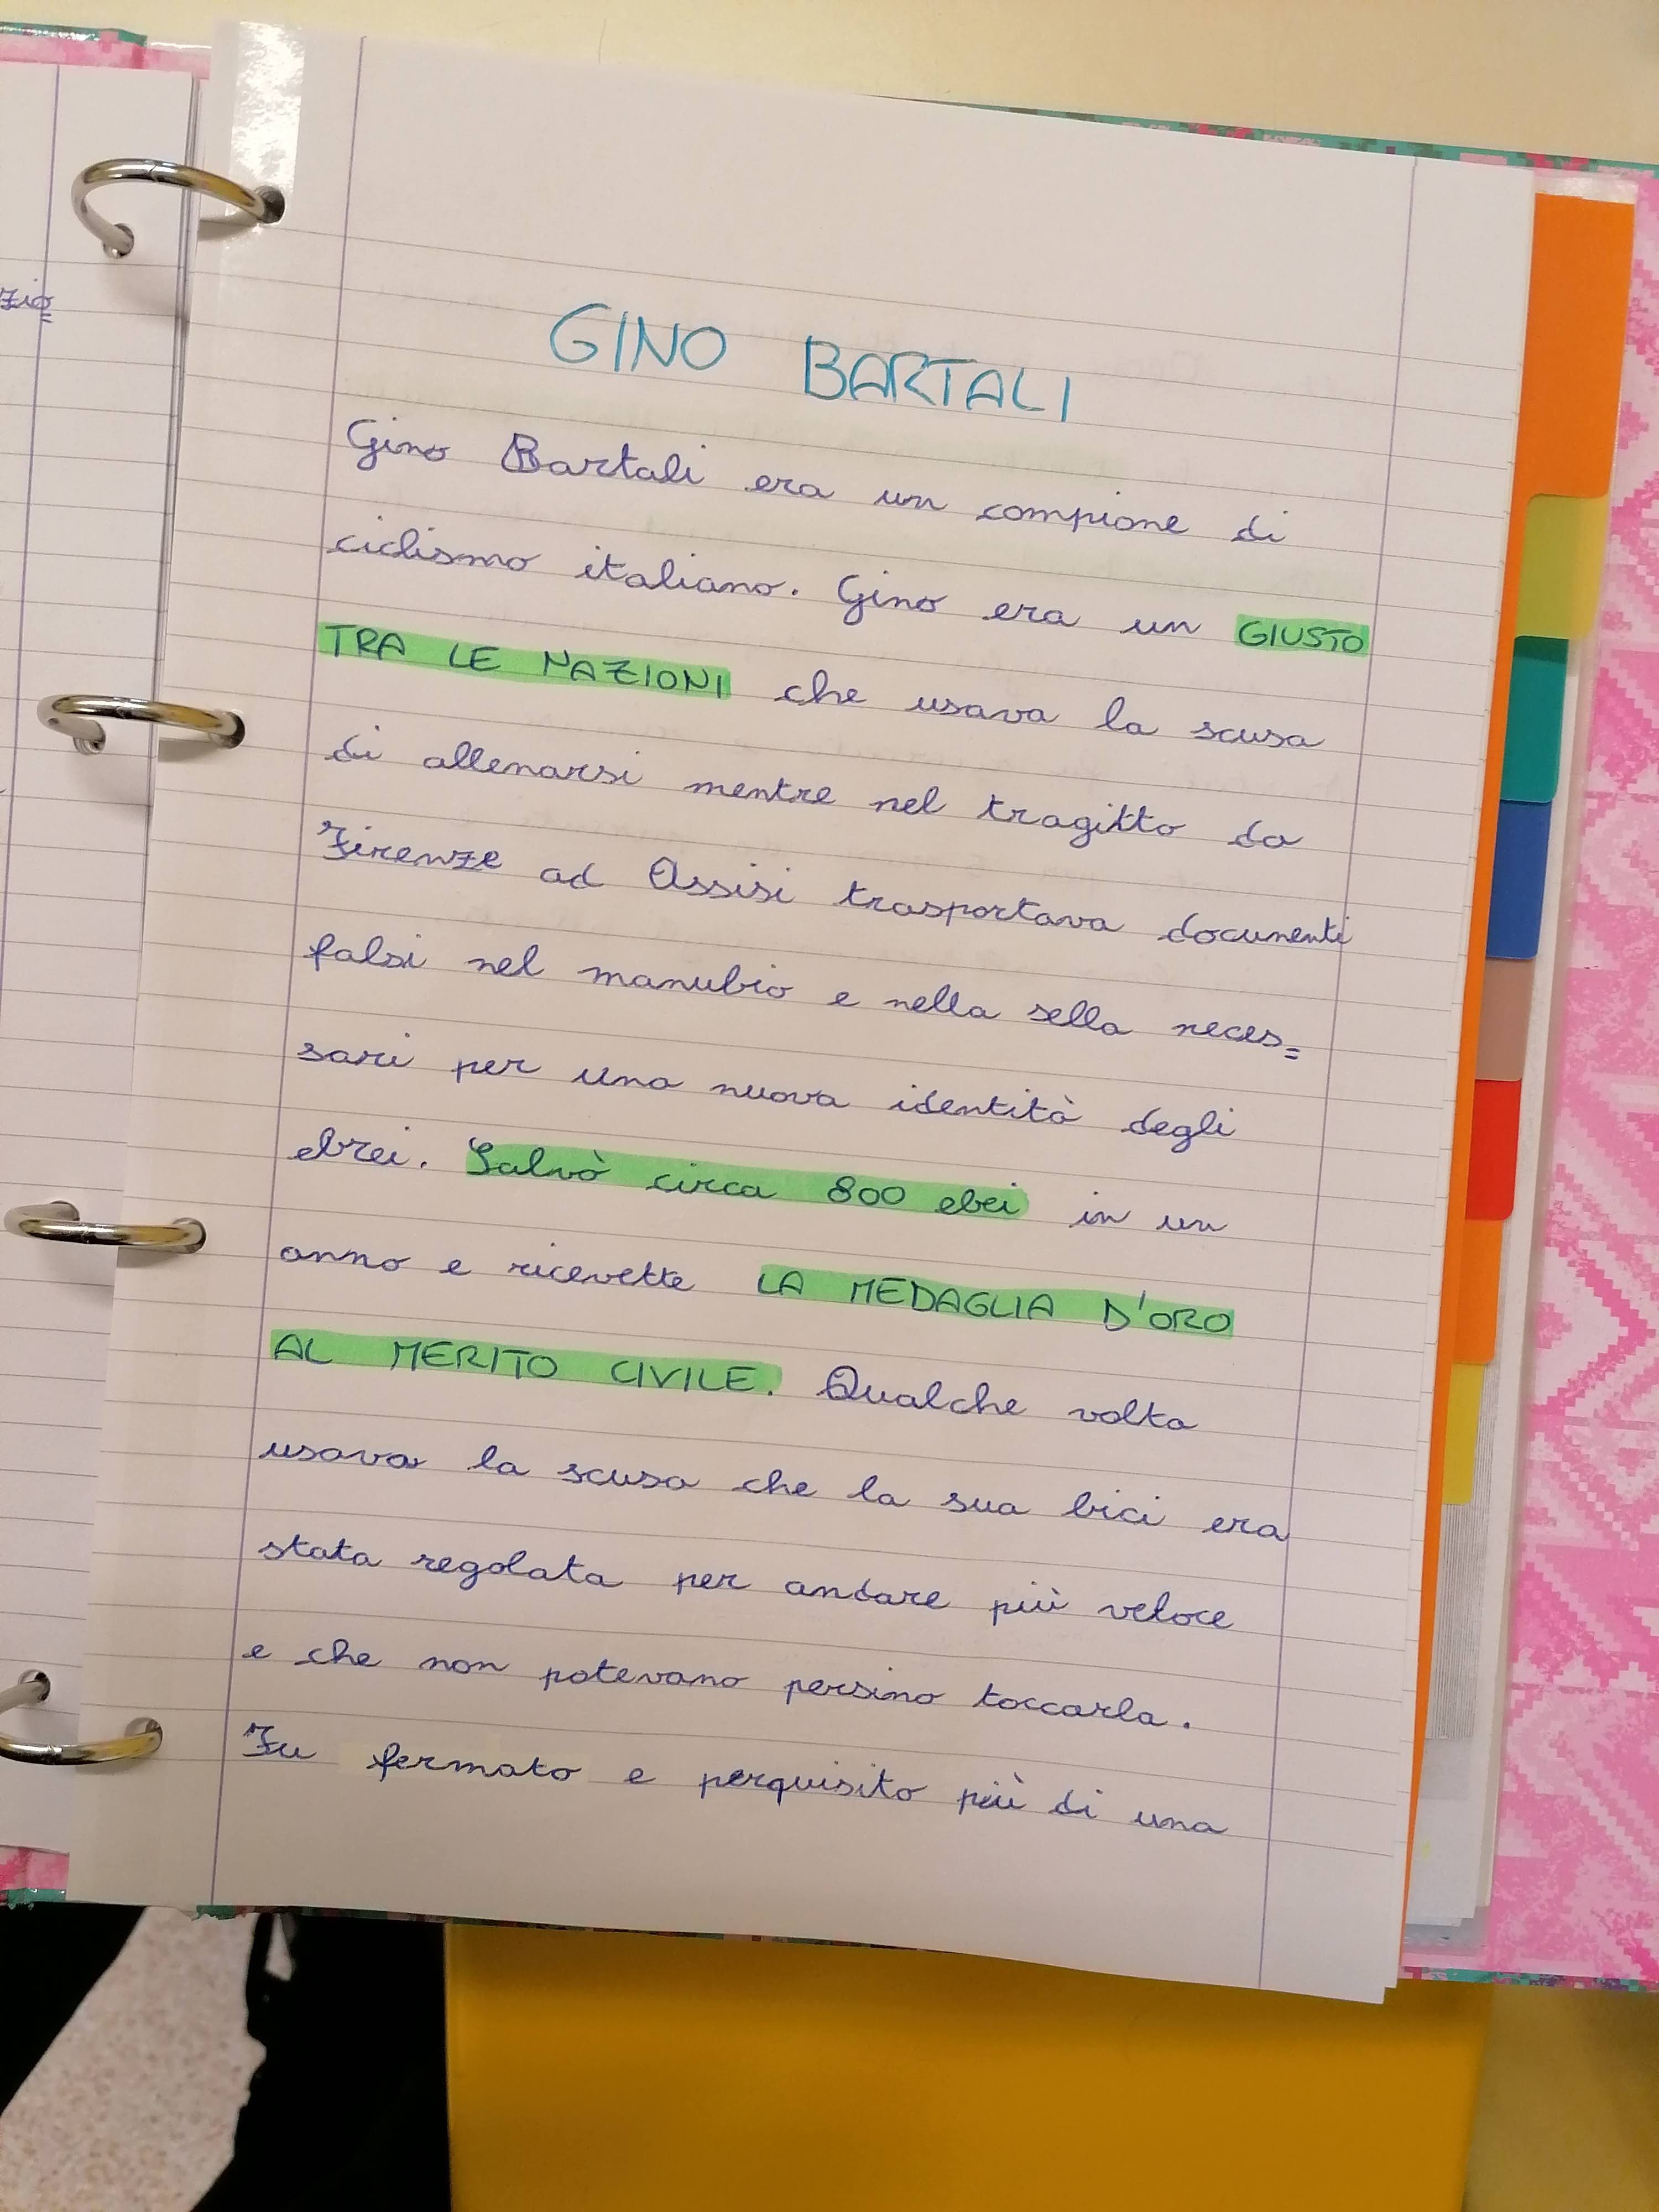 zio
GINO BARTALI
Gino Bartali era un compione di
ciclismo italiano. Gino era un GIUSTO
TRA LE NAZIONI che usava la scusa
di allenarsi mentre nel tragitto da
Firenze ad Assisi trasportava documenti
falsi nel manubrio e nella sella neces=
sari per una nuova identità degli
ebrei. Salvò circa 800 ebei in un
anno e ricevette LA MEDAGLIA D'ORO
AL MERITO CIVILE. Qualche volta
usava la scusa che la sua bici era
stata regolata per andare più veloce
e che non potevano persino toccarla.
Fu fermato e perquisito più di una